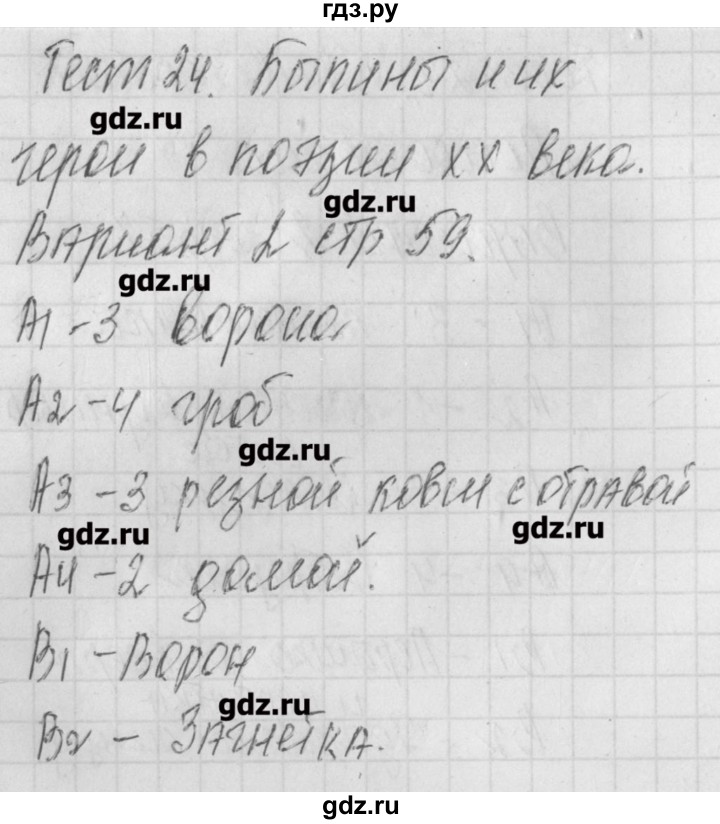 гдз.ру
Тест 24. Былины и их
gdz.ru
герои в поэзии XX века.
gdz.ru
Вариант 2 стр 59.
gdz.ru
А1 - 3 ворона
А2 - 4 гроб
gdz.ru
А3 - 3 резной ковш с отравой
gdz.ru
gdz.ru
А4 - 2 домой.
В1 - Ворон
gdz.ru
В2 - Загнейка.
gdz.ru